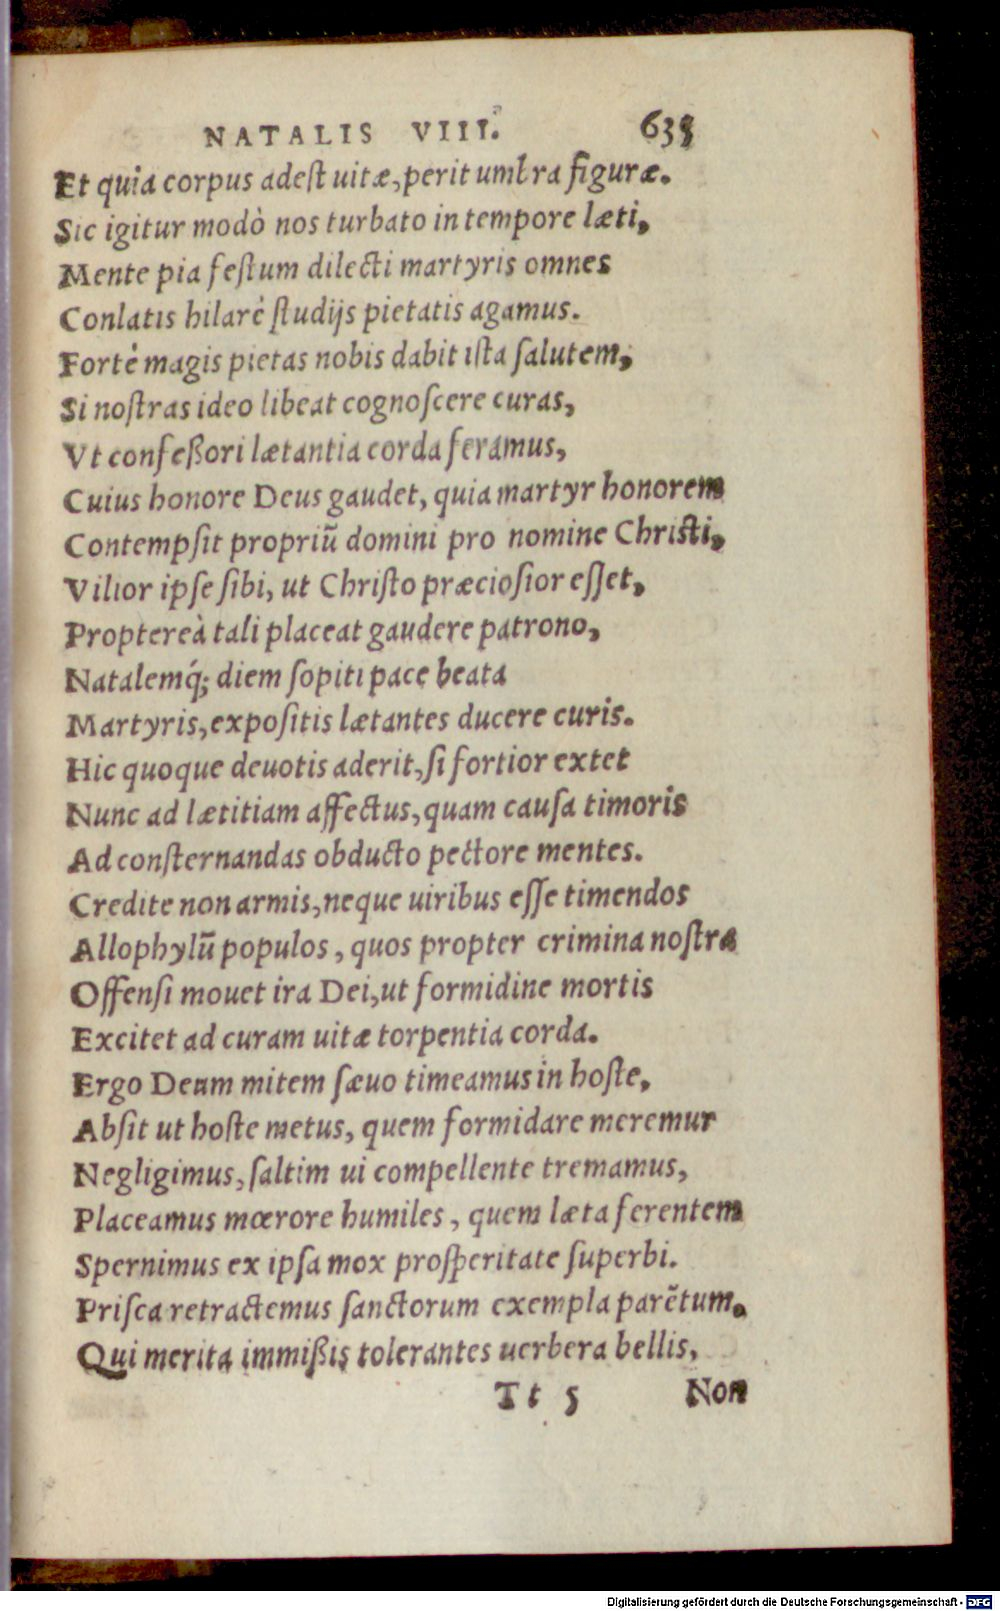 NATALIS VIII. 635
Et quia corpus adest uitæ, perit umbra figuræ.
Sic igitur modò nos turbato in tempore læti,
Mente pia festum dilecti martyris omnes
Conlatis hilarè studijs pietatis agamus.
Fortè magis pietas nobis dabit ista salutem,
Si nostras ideo libeat cognoscere curas,
Vt confeßori lætantia corda feramus,
Cuius honore Deus gaudet, quia martyr honorem
Contempsit propriũ domini pro nomine Christi,
Vilior ipse sibi, ut Christo præciosior esset,
Proptereà tali placeat gaudere patrono,
Natalemq́; diem sopiti pace beata
Martyris, expositis lætantes ducere curis.
Hic quoque deuotis aderit, si fortior extet
Nunc ad lætitiam affectus, quam causa timoris
Ad consternandas obducto pectore mentes.
Credite non armis, neque uiribus esse timendos
Allophylũ populos, quos propter crimina nostra
Offensi mouet ira Dei, ut formidine mortis
Excitet ad curam uitæ torpentia corda.
Ergo Deum mitem sæuo timeamus in hoste,
Absit ut hoste metus, quem formidare meremur
Negligimus, saltim ui compellente tremamus,
Placeamus mœrore humiles, quem læta ferentem
Spernimus ex ipsa mox prosperitate superbi.
Prisca retractemus sanctorum exempla parẽtum.
Qui merita immißis tolerantes uerbera bellis,
Tt 5 Non
Digitalisierung gefördert durch die Deutsche Forschungsgemeinschaft - DFG